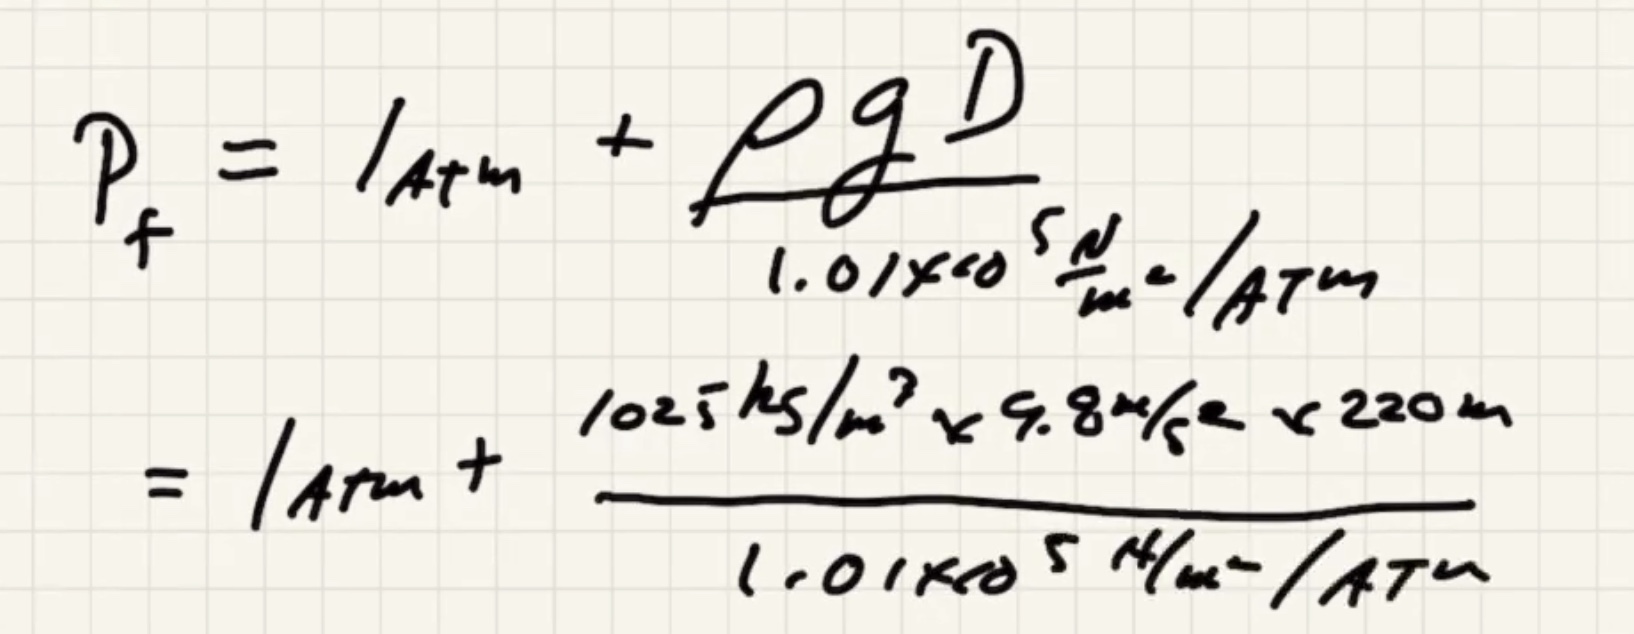 P_f = 1 ATm + ρgD / 1.01×10^5 N/m^2/ATm
= 1 ATm + 1025 kg/m^3 × 9.8 m/s^2 × 220 m / 1.01×10^5 N/m^2/ATm